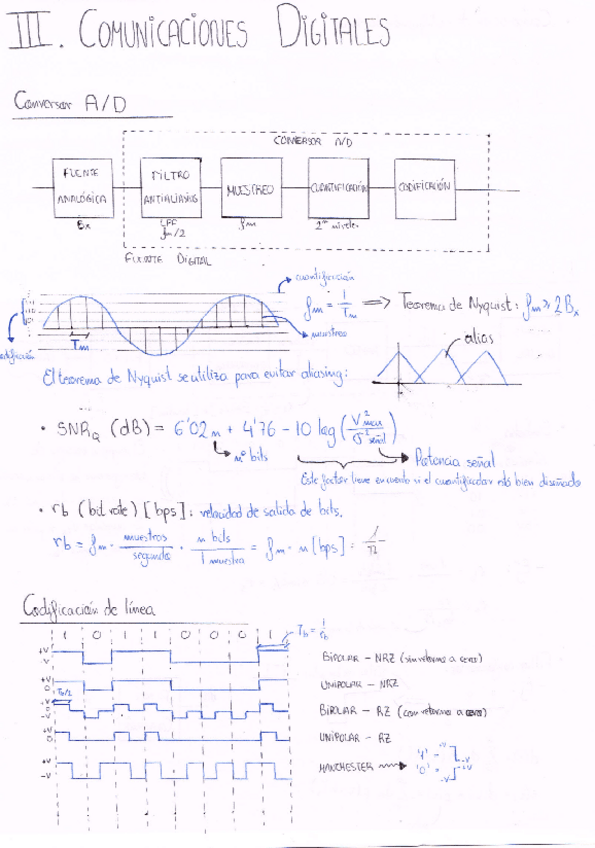 III. COMUNICACIONES DIGITALES
Conversor A/D
CONVERSOR A/D
FUENTE ANALÓGICA
FILTRO ANTIALIASING
MUESTREO
CUANTIFICACIÓN
CODIFICACIÓN
Bx
LPF
fm/2
fm
2ⁿ niveles
FUENTE DIGITAL
cuantificación
fm = 1/Tm ⟹ Teorema de Nyquist: fm ≥ 2Bx
muestreo
Tm
codificación
alias
El teorema de Nyquist se utiliza para evitar aliasing:
• SNR_Q (dB) = 6'02n + 4'76 - 10 log (V²max/σ²señal)
nº bits
Potencia señal
Este factor tiene en cuenta si el cuantificador está bien diseñado
• rb (bit rate) [bps]: velocidad de salida de bits.
rb = fm · muestras/segundo · n bits/1 muestra = fm · n [bps] = 1/Tb
Codificación de línea
Tb = 1/rb
1 0 1 1 0 0 0 1
+V
-V
BIPOLAR - NRZ (sin retorno a cero)
+V
0
UNIPOLAR - NRZ
Tb/2
+V
-V
BIPOLAR - RZ (con retorno a cero)
+V
0
UNIPOLAR - RZ
+V
-V
MANCHESTER
'1' - +V -V
'0' - -V +V